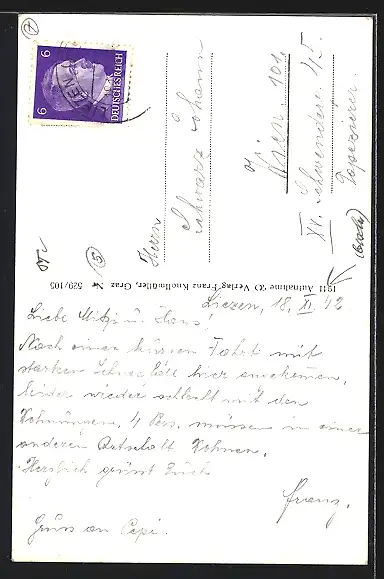 6 DEUTSCHES REICH 6
Herrn
Schwarz Johann
Wien 101.
XV. Schwenderg.
Tapezierer.
1941 Aufnahme u. Verlag Franz Knollmüller, Graz Nr. 529/105
15
Liezen, 18. XI. 42
Liebe Mitzi u. Hans!
Nach einer kurzen Fahrt mit
starken Schneefall hier angekommen,
leider wieder schlecht mit den
Wohnungen, 4 Pers. müssen in einer
anderen Ortschaft Wohnen.
Herzlich grüsst Euch
Franz.
Gruss an Pepi.